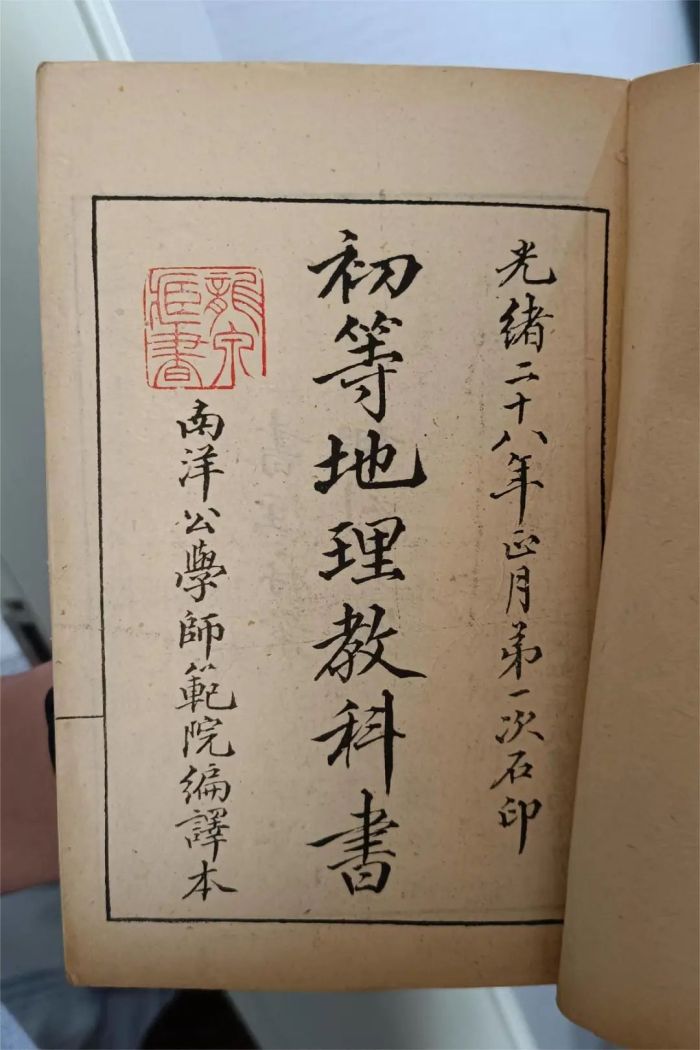 光緒二十八年正月第一次石印
初等地理教科書
南洋公學師範院編譯本
龍门
臧書